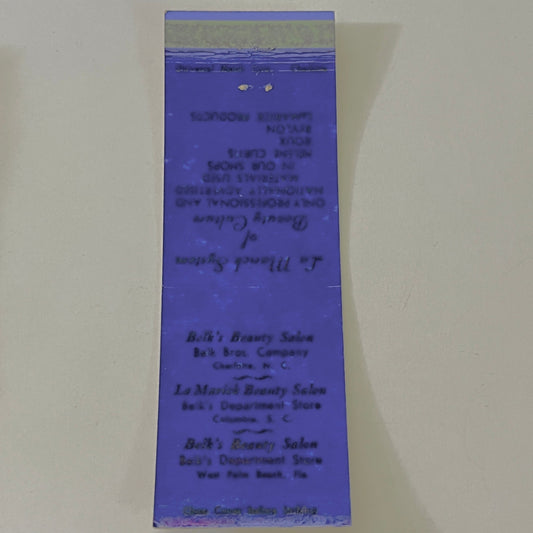 La Marick System
of
Beauty Culture
ONLY PROFESSIONAL AND
NATIONALLY ADVERTISED
MATERIALS USED
IN OUR SHOPS
HELENE CURTIS
ROUX
REVLON
LAMARICK PRODUCTS
Belk's Beauty Salon
Belk Bros. Company
Charlotte, N. C.
La Marick Beauty Salon
Belk's Department Store
Columbia, S. C.
Belk's Beauty Salon
Belk's Department Store
West Palm Beach, Fla.
Close Cover Before Striking